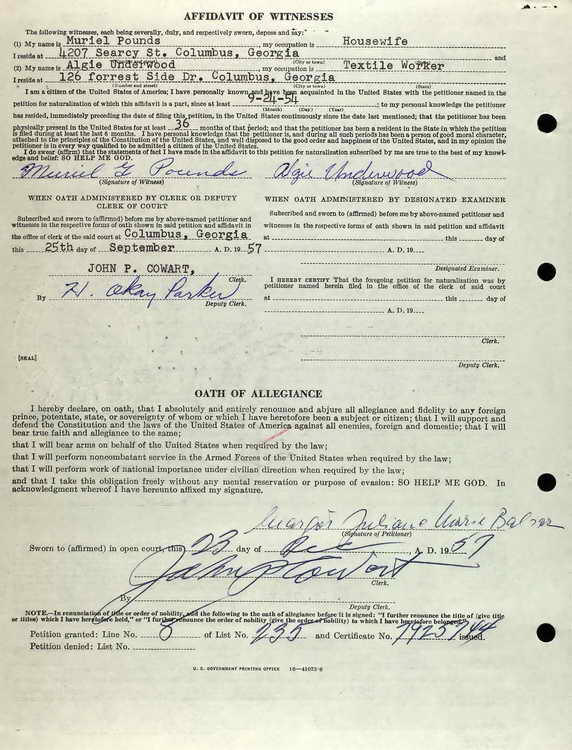 AFFIDAVIT OF WITNESSES
The following witnesses, each being severally, duly, and respectively sworn, depose and say:
(1) My name is Muriel Pounds, my occupation is Housewife
I reside at 4207 Searcy St. Columbus, Georgia and
(City or town)
(2) My name is Algie Underwood, my occupation is Textile Worker
I reside at 126 forrest Side Dr. Columbus, Georgia
(Number and street) (City or town) (State)
I am a citizen of the United States of America; I have personally known and have been acquainted in the United States with the petitioner named in the
petition for naturalization of which this affidavit is a part, since at least 9-24-54; to my personal knowledge the petitioner
(Month) (Day) (Year)
has resided, immediately preceding the date of filing this petition, in the United States continuously since the date last mentioned; that the petitioner has been
physically present in the United States for at least 36 months of that period; and that the petitioner has been a resident in the State in which the petition
is filed during at least the last 6 months. I have personal knowledge that the petitioner is, and during all such periods has been a person of good moral character,
attached to the principles of the Constitution of the United States, and well disposed to the good order and happiness of the United States, and in my opinion the
petitioner is in every way qualified to be admitted a citizen of the United States.
I do swear (affirm) that the statements of fact I have made in the affidavit to this petition for naturalization subscribed by me are true to the best of my knowl-
edge and belief: SO HELP ME GOD.
Muriel G Pounds Algie Underwood
(Signature of Witness) (Signature of Witness)
WHEN OATH ADMINISTERED BY CLERK OR DEPUTY
CLERK OF COURT
Subscribed and sworn to (affirmed) before me by above-named petitioner and
witnesses in the respective forms of oath shown in said petition and affidavit in
the office of the clerk of said court at Columbus, Georgia
this 25th day of September A. D. 19 57
JOHN P. COWART,
Clerk.
By H. Okay Parker
Deputy Clerk.
[SEAL]
WHEN OATH ADMINISTERED BY DESIGNATED EXAMINER
Subscribed and sworn to (affirmed) before me by above-named petitioner and
witnesses in the respective forms of oath shown in said petition and affidavit
at this day of
A. D. 19
Designated Examiner.
I HEREBY CERTIFY That the foregoing petition for naturalization was by
petitioner named herein filed in the office of the clerk of said court
at this day of
A. D. 19
Clerk.
Deputy Clerk.
OATH OF ALLEGIANCE
I hereby declare, on oath, that I absolutely and entirely renounce and abjure all allegiance and fidelity to any foreign
prince, potentate, state, or sovereignty of whom or which I have heretofore been a subject or citizen; that I will support and
defend the Constitution and the laws of the United States of America against all enemies, foreign and domestic; that I will
bear true faith and allegiance to the same;
that I will bear arms on behalf of the United States when required by the law;
that I will perform noncombatant service in the Armed Forces of the United States when required by the law;
that I will perform work of national importance under civilian direction when required by the law;
and that I take this obligation freely without any mental reservation or purpose of evasion: SO HELP ME GOD. In
acknowledgment whereof I have hereunto affixed my signature.
Juliane Marie
(Signature of Petitioner)
Sworn to (affirmed) in open court, this 23 day of Dec A. D. 19 57
John P Cowart
Clerk.
By
Deputy Clerk.
NOTE.—In renunciation of title or order of nobility, add the following to the oath of allegiance before it is signed: "I further renounce the title of (give title
or titles) which I have heretofore held," or "I further renounce the order of nobility (give the order of nobility) to which I have heretofore belonged."
Petition granted: Line No. 8 of List No. 235 and Certificate No. 7925744 issued.
Petition denied: List No.
U. S. GOVERNMENT PRINTING OFFICE 16—41072-6